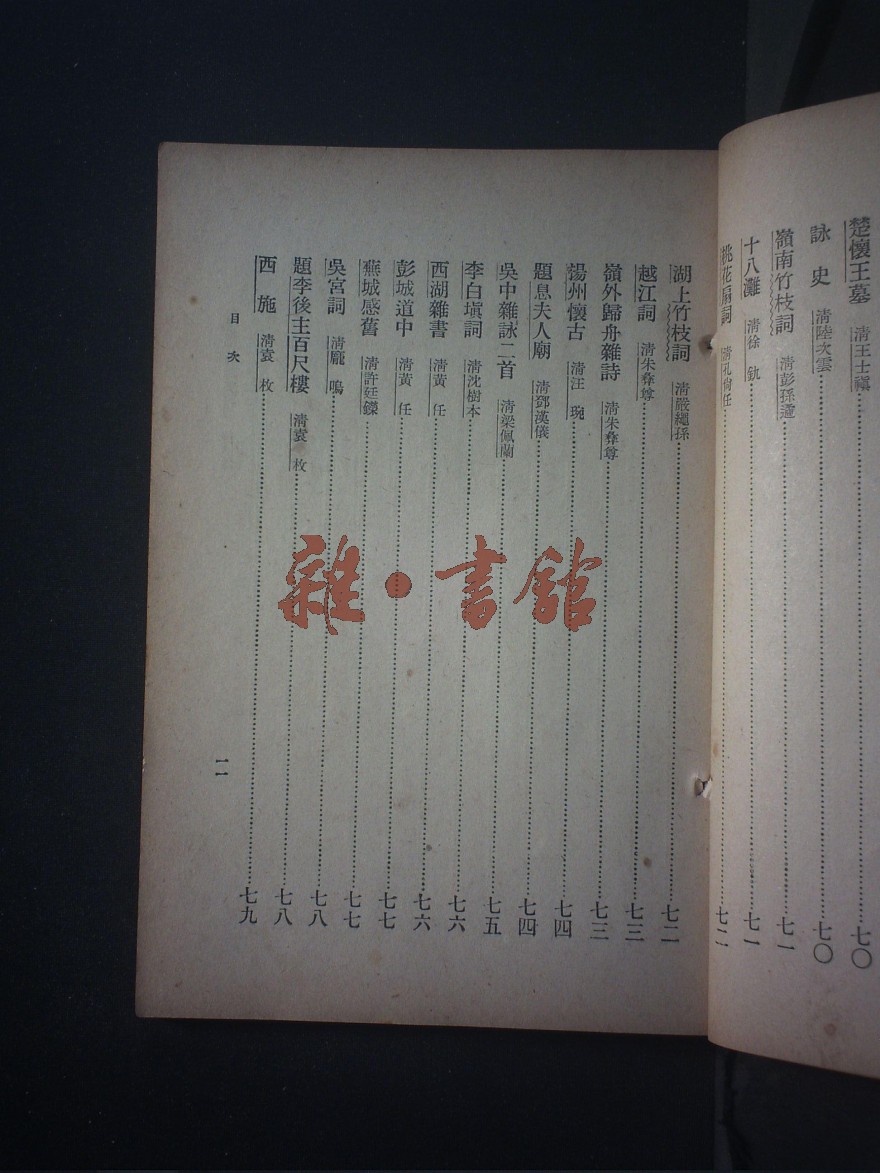 楚懷王墓 清王士禛 七〇
詠史 清陸次雲 七〇
嶺南竹枝詞 清彭孫遹 七一
十八灘 清徐釚 七一
桃花扇詞 清孔尙任 七二
湖上竹枝詞 清嚴繩孫 七二
越江詞 清朱彝尊 七三
嶺外歸舟雜詩 清朱彝尊 七三
揚州懷古 清汪琬 七四
題息夫人廟 清鄧漢儀 七四
吳中雜詠二首 清梁佩蘭 七五
李白墳詞 清沈樹本 七六
西湖雜書 清黃任 七六
彭城道中 清黃任 七七
蕪城感舊 清許廷鑅 七七
吳宮詞 清龐鳴 七八
題李後主百尺樓 清袁枚 七八
西施 清袁枚 七九
目次
一一
雜·書館